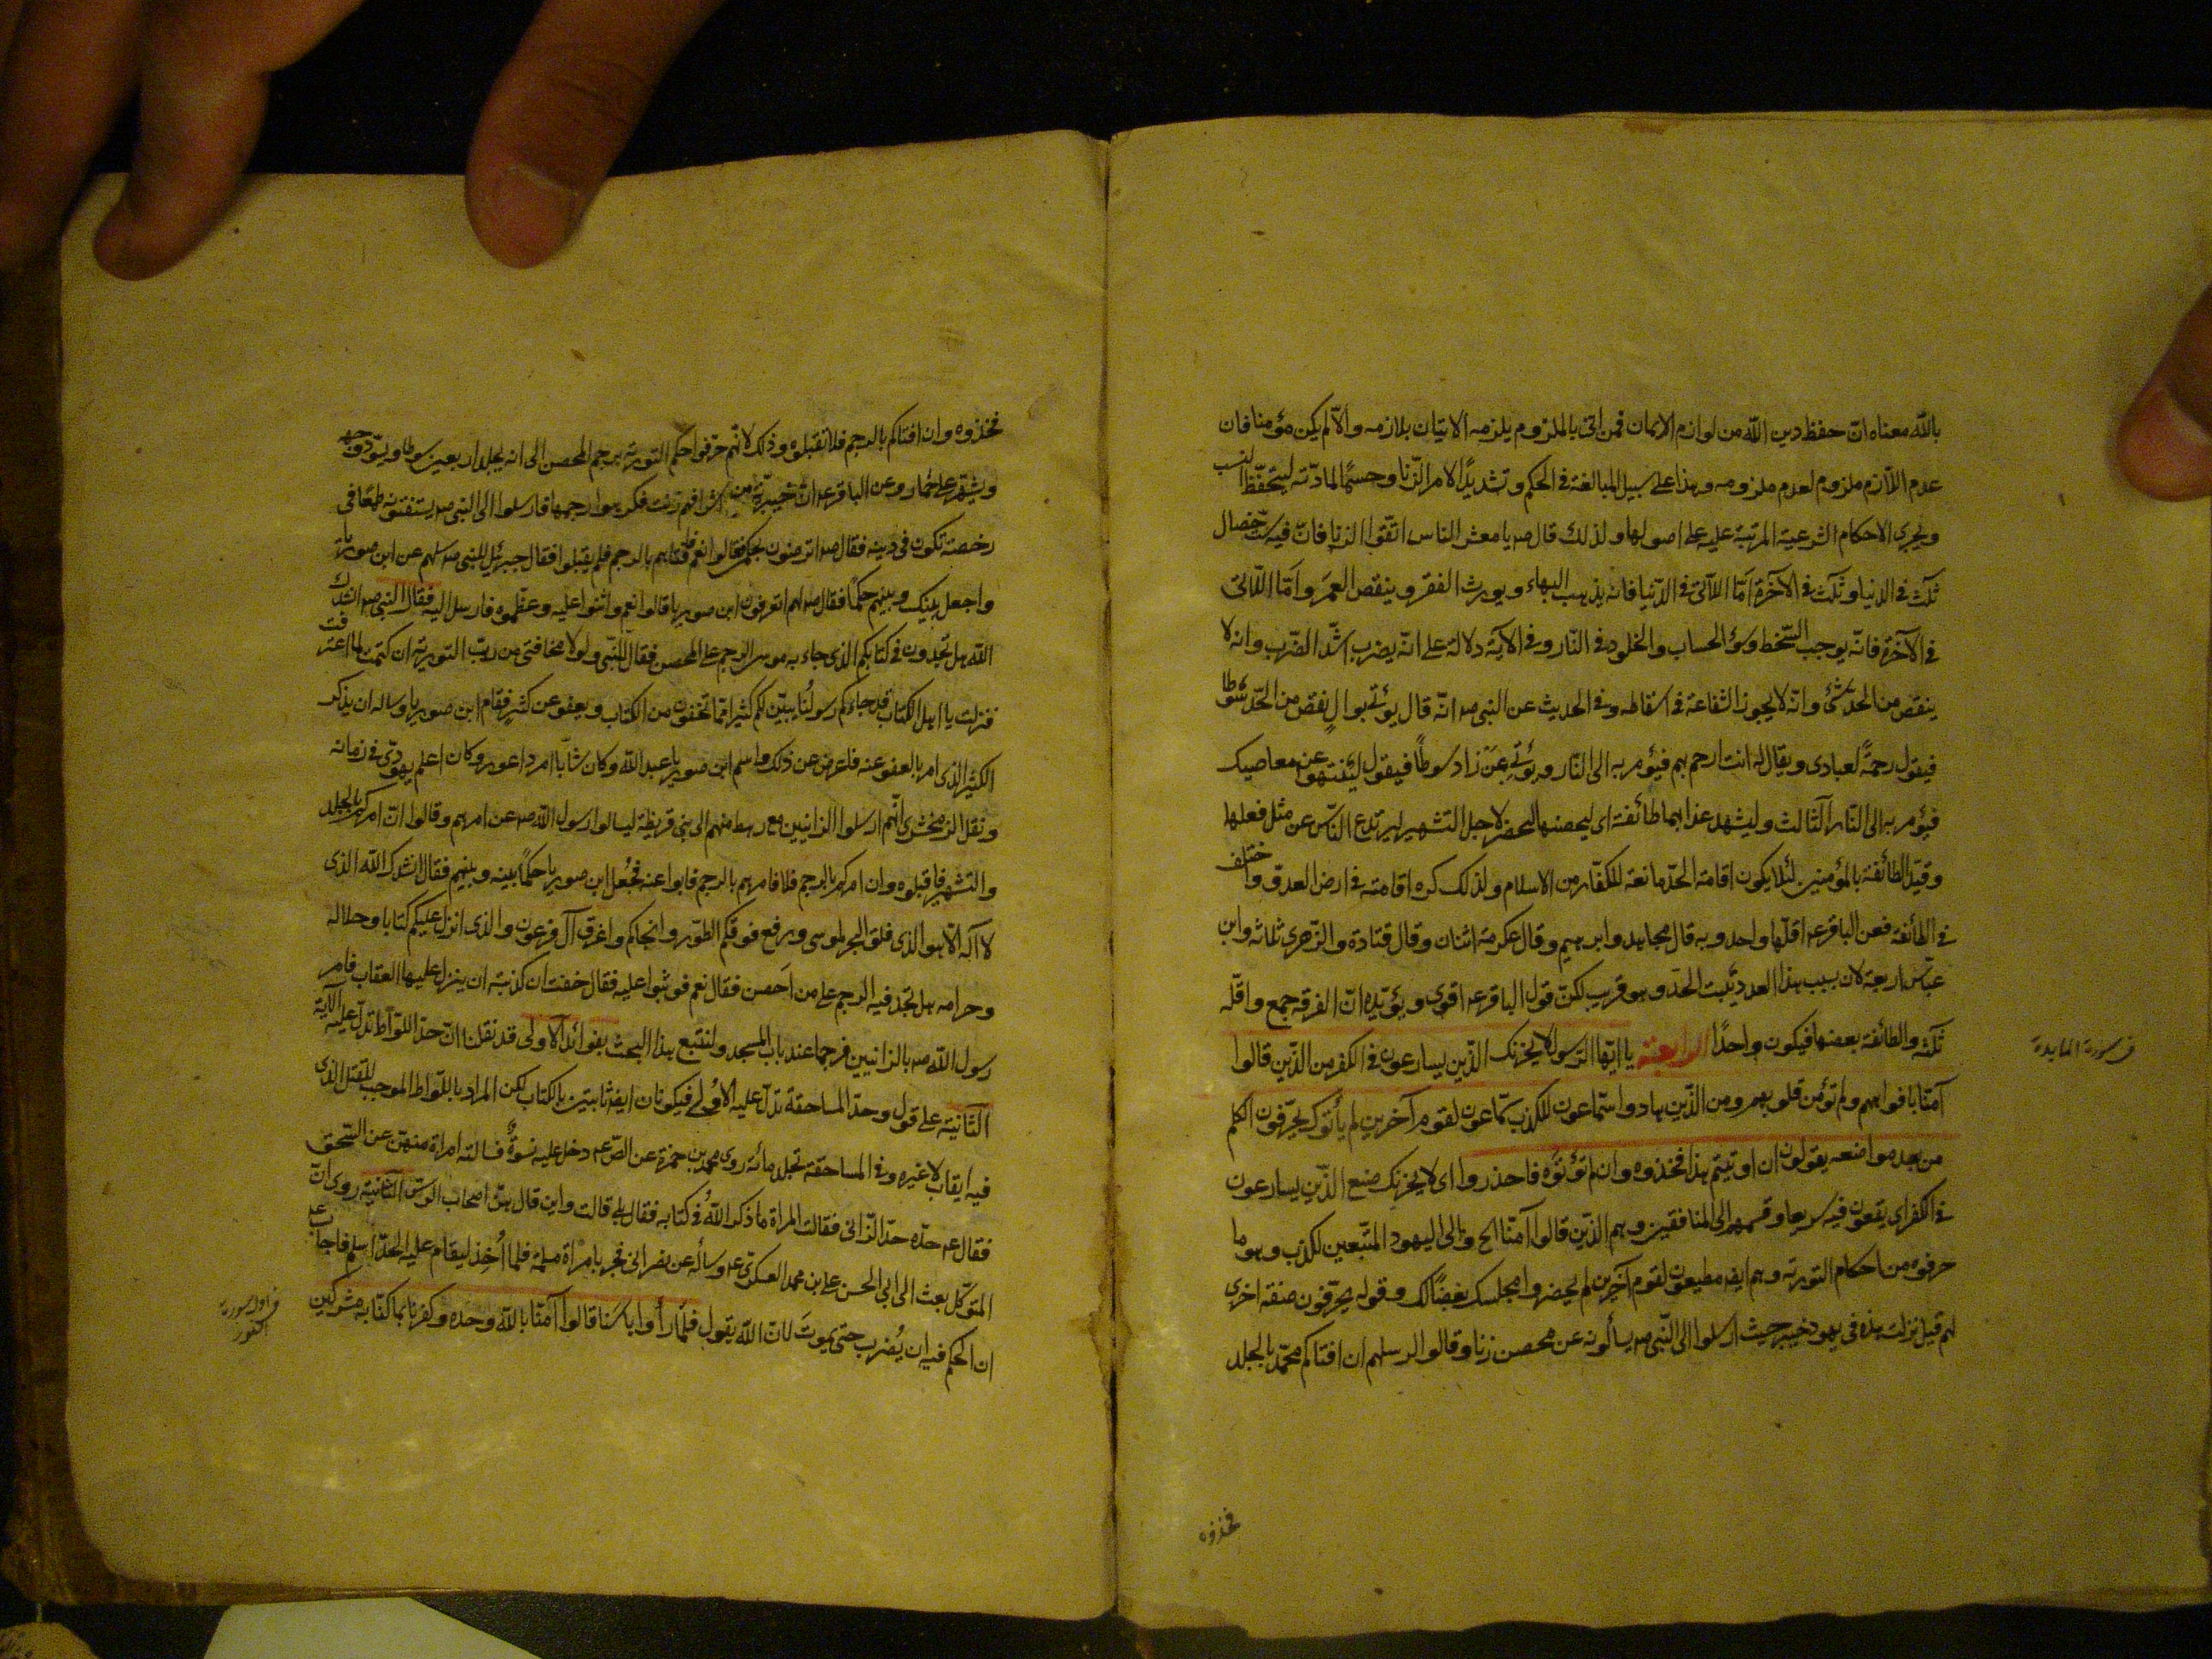 بالله معناه ان حفظ دين الله من لوازم الايمان فمن اتى بالملزوم يلزمه الاتيان بلازمه والا لم يكن مؤمنا فان
عدم اللازم ملزوم لعدم ملزومه وهذا على سبيل المبالغة فى الحكم وتشديدًا لامر الزنا وحسمًا لمادّته ليتحفّظ النسب
ويجرى الاحكام الشرعية المرتبة عليه على اصولها ولذلك قال ص يا معشر الناس اتقوا الزنا فان فيه ستّ خصال
ثلث فى الدنيا وثلث فى الآخرة امّا اللاتى فى الدّنيا فانه يذهب البهاء ويورث الفقر وينقص العمر وامّا اللاتى
فى الآخرة فانّه يوجب السّخط وسوء الحساب والخلود فى النّار وفى الآية دلالة على انّه يضرب اشدّ الضّرب وانه لا
ينقص من الحد شئ وانّه لا يجوز الشفاعة فى اسقاطه وفى الحديث عن النبى ص انّه قال يؤتى بوالٍ نقص من الحدّ سوطا
فيقول رحمةً لعبادى ويقال له انت ارحم بهم فيؤمر به الى النّار ويؤتى بمن زاد سوطًا فيقول لينتهوا عن معاصيك
فيؤمر به الى النّار الثالث وليشهد عذابهما طائفة اى ليحضنها ليحضر لاجل التشهير ليرتدع النّاس عن مثل فعلها
وقيّد الطائفة بالمؤمنين لئلا يكون اقامة الحدّ مانعة للكفّار من الاسلام ولذلك كره اقامته فى ارض العدوّ واختلف
فى الطائفة فعن الباقر ع اقلّها واحد وبه قال مجاهد وابرهيم وقال عكرمة اثنان وقال قتادة والزهرى ثلاثه وابن
عبّاس اربعة لان بسبب هذا العدد يثبت الحدّ وهو قريب لكنّ قول الباقر ع اقوى ويؤيّده انّ الفرقة جمع واقلّه
ثلثه والطائفة بعضها فيكون واحدًا الرابعة يا ايّها الرسول لا يحزنك الذّين يسارعون فى الكفر من الذّين قالوا
آمنّا بافواههم ولم تؤمن قلوبهم ومن الذّين هادوا سمّاعون للكذب سمّاعون لقوم آخرين لم يأتوك يحرّفون الكلم
من بعد مواضعه يقولون ان اوتيتم هذا فخذوه وان لم تؤتوه فاحذروا اى لا يحزنك صنع الذّين يسارعون
فى الكفر اى يقعون فيه سريعا وقسمهم الى المنافقين وهم الذّين قالوا آمنّا الخ والى اليهود المتّبعين للكذب وهو ما
حرفوه من احكام التورية وهم ايضا مطيعون لقوم آخرين لم يحضروا مجلسك بغضًا لك وقوله يحرّفون صفة اخرى
لهم قيل نزلت هذه فى يهود خيبر حيث ارسلوا الى النّبى ص يسألونه عن محصن زنا وقالوا لرسلهم ان افتاكم محمّد بالجلد
فى سورة المايدة
فخذوه
فخذوه وان افتاكم بالرجم فلا تقبلوه وذلك لانّهم حرّفوا حكم التورية برجم المحصن الى انه يجلد اربعين سوطا ويسوّد وجهه
ويشهّر على حمار وعن الباقر ع ان خيبريّة من اشرافهم زنت فكرهوا رجمها فارسلوا الى النبى ص يستفتونه طمعًا فى
رخصة تكون فى دينه فقال ص اترضون بحكمى فقالوا نعم فافتاهم بالرجم فلم يقبلوا فقال جبرئيل للنبى ص سلهم عن ابن صوريا
واجعل بينك وبينهم حكمًا فقال ص لهم اتعرفون ابن صوريا قالوا نعم واثنوا عليه وعظّموه فارسل اليه فقال النبى ص انشدك
الله هل تجدون فى كتابكم الذى جاء به موسى الرجم على المحصن فقال للنّبى ولولا مخافتى من ربّ التورية ان كتمت لما اعترفت
فنزلت يا اهل الكتاب قد جاءكم رسولنا يبيّن لكم كثيرا مما تخفون من الكتاب ويعفو عن كثير فقام ابن صوريا وساله ان يذكر
الكثير الذى امر بالعفو عنه فاعرض عن ذلك واسم ابن صوريا عبد الله وكان شابّا امرد اعور وكان اعلم يهودىّ فى زمانه
ونقل الزمخشرى انّهم ارسلوا الزانيين مع رهط منهم الى بنى قريظة ليسالوا رسول الله ص عن امرهم وقالوا ان امركم بالجلد
والتشهير فاقبلوه وان امركم بالرجم فلا فامرهم بالرجم فابوا عنه فجُعل ابن صوريا حكمًا بينه وبينهم فقال انشدك الله الذى
لا آله الّا هو الذى فلق البحر لموسى ورفع فوقكم الطور وانجاكم واغرق آل فرعون والذى انزل عليكم كتابا وحلاله
وحرامه هل تجد فيه الرجم على من احصن فقال نعم فوثبوا عليه فقال خفت ان كذبته ان ينزل علينا العقاب فامر
رسول الله ص بالزانيين فرجما عند باب المسجد ولنتبع هذا البحث بفوائد الاولى قد نقلنا انّ حدّ اللوّاط تدلّ عليه الآية
الثّانية على قول وحدّ المساحقة تدلّ عليه الاولى فيكونان ايضا ثابتين بالكتاب لكن المراد باللّواط الموجب للقتل الذى
فيه ايقاب لا غيره وفى المساحقة تجلد مائة روى محمد بن حمزة عن الصّ ع دخل عليه نسوةٌ فسالته امراة منهنّ عن السّحق
فقال ع حدّه حدّ الزّانى فقالت المراة ما ذكر اللهُ فى كتابه فقال بلى قالت واين قال هنّ اصحاب الرسّ الثّانية روى انّ
المتوكّل بعث الى ابى الحسن على بن محمد العسكرىّ ع وسأله عن نصرانى فجر بامرأة مسلمة فلما اُخذ ليقام عليه الحدّ اسلم فاجاب ع
ان الحكم فيه ان يُضرب حتى يموت لان الله يقول فلمّا رأوا باسنا قالوا آمنّا بالله وحده وكفرنا بما كنّا به مشركين